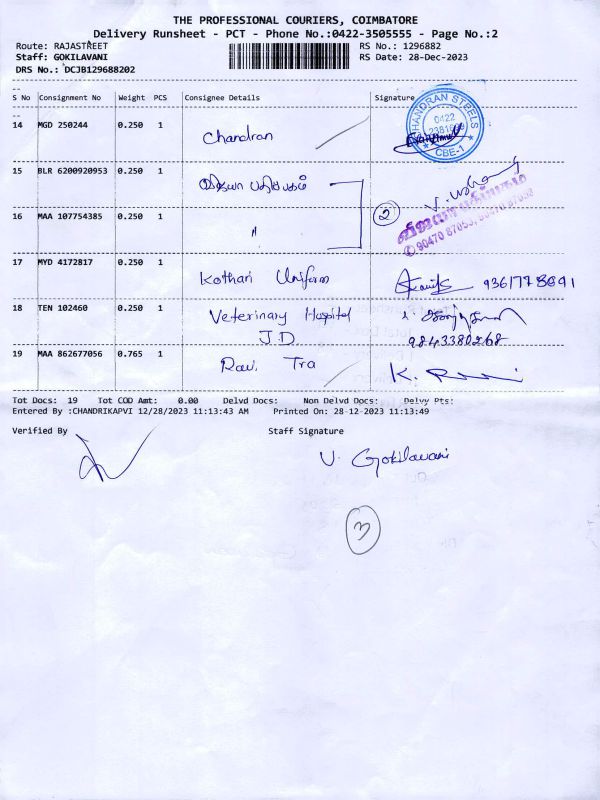 THE PROFESSIONAL COURIERS, COIMBATORE
Delivery Runsheet - PCT - Phone No.:0422-3505555 - Page No.:2
Route: RAJASTREET
RS No.: 1296882
Staff: GOKILAVANI
RS Date: 28-Dec-2023
DRS No.: DCJB129688202
S No Consignment No Weight PCS Consignee Details Signature
14 MGD 250244 0.250 1 Chandran
CHANDRAN STEELS
0422
CBE-1
15 BLR 6200920953 0.250 1
2
16 MAA 107754385 0.250 1 "
90470 87053, 90470 87052
17 MYD 4172817 0.250 1 Kothari Uniform
18 TEN 102460 0.250 1 Veterinary Hospital
J.D 9843380268
19 MAA 862677056 0.765 1 Ravi Tra K. Ravi
Tot Docs: 19 Tot COD Amt: 0.00 Delvd Docs: Non Delvd Docs: Delvy Pts:
Entered By :CHANDRIKAPVI 12/28/2023 11:13:43 AM Printed On: 28-12-2023 11:13:49
Verified By Staff Signature
V. Gokilavani
3